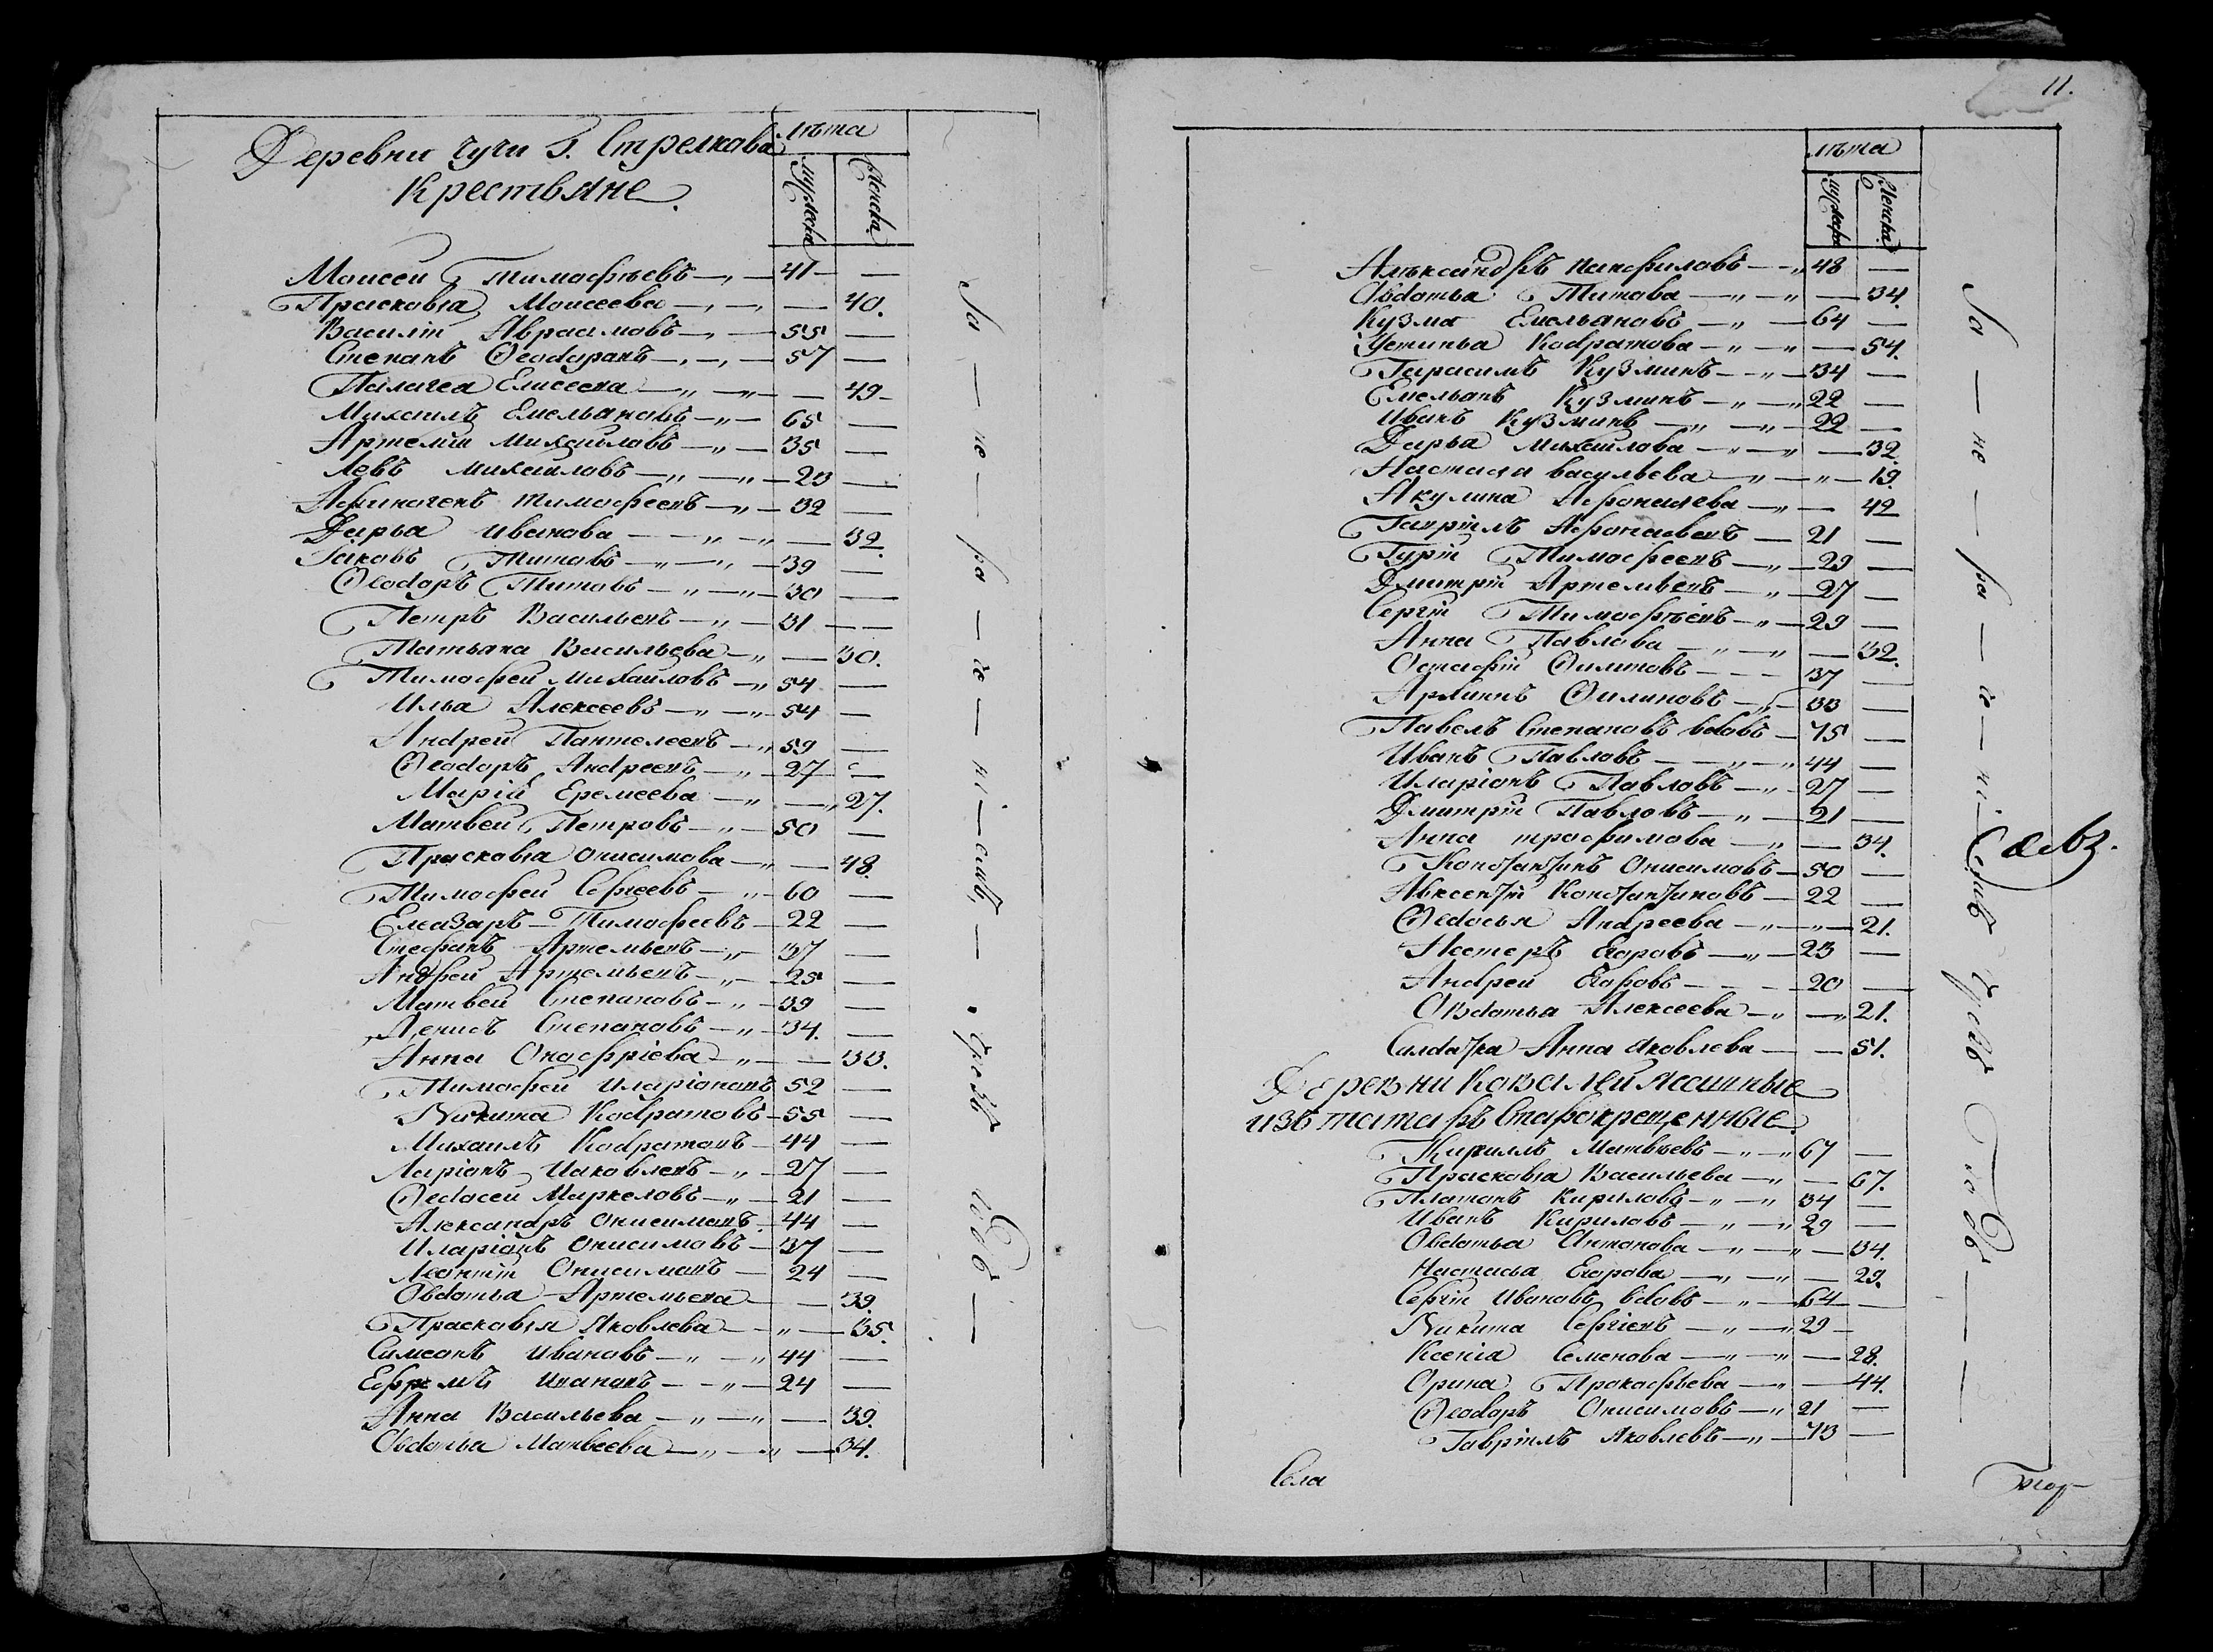 Деревни чучи Г. Стрелкова
крестьяне.
лѣта
мужска
Женска
Моисеи Тимофѣевъ 41
Прасковья Моисеева 40.
Василіи Авраамовъ 55
Степанъ Ѳеодоровъ 57
Палагея Елисеева 49
Михаилъ Емельяновъ 65
Артеміи Михаиловъ 35
Левъ Михаиловъ 23
Афиногенъ тимофеевъ 32
Дарья Иванова 32.
Іаковъ Титовъ 39
Ѳеодоръ Титовъ 30
Петръ Васильевъ 31
Татьяна Васильева 30.
Тимофеи Михаиловъ 54
Илья Алексеевъ 54
Андреи Пантелеевъ 59
Ѳеодоръ Андреевъ 27
Маріи Еремеева 27.
Матвеи Петровъ 50
Прасковья Онисимова 48.
Тимофеи Сергеевъ 60
Елеазаръ Тимофеевъ 22
Стефанъ Артемьевъ 37
Андреи Артемьевъ 25
Матвеи Степановъ 39
Денисъ Степановъ 34.
Анна Онофріева 33.
Тимофеи Иларіоновъ 52
Никита Кодратовъ 55
Михаилъ Кодратовъ 44
Ларіонъ Иаковлевъ 27
Ѳедосеи Маркеловъ 21
Александръ Онисимовъ 44
Иларіонъ Онисимовъ 37
Леонтіи Онисимовъ 24
Овдотья Артемьева 39.
Прасковья Яковлева 35.
Симеонъ Ивановъ 44
Ефремъ Ивановъ 24
Анна Васильева 39.
Овдотья Матвеева 34.
11.
лѣта
мужска
Женска
Алѣксандръ Панфиловъ 48
Овдотья Титова 34.
Кузма Емельяновъ 64
Устинья Кодратова 54.
Гарасимъ Кузминъ 34
Емельянъ Кузминъ 22
Иванъ Кузминъ 22
Дарья Михаилова 32.
Настасья васильева 19.
Акулина Афонасьева 42
Гавріилъ Афонасьевъ 21
Гуріи Тимофеевъ 29
Дмитріи Артемьевъ 27
Сергіи Тимофѣевъ 29
Анна Павлова 32.
Остафіи Филиповъ 37
Филиповъ 33
Павелъ Степановъ вдовъ 75
Иванъ Павловъ 44
Иларіонъ Павловъ 27
Дмитріи Павловъ 21
Анна трофимова 34.
Константинъ Онисимовъ 50
Авксентіи Константиновъ 22
Ѳедосья Андреева 21.
Нестеръ Егоровъ 23
Андреи Егоровъ 20
Овдотья Алексеева 21.
Салдатка Анна Яковлева 51.
Деревни Ковалей ясашные
изъ татаръ Старокрещенные.
Кирилъ Матвѣевъ 67
Прасковья Васильева 67.
Платонъ Кириловъ 34
Иванъ Кириловъ 29
Овдотья Антонова 34.
Настасья Егорова 29.
Сергіи Ивановъ вдовъ 64
Никита Сергіевъ 29
Ксенія Семенова 28.
Орина Прокофьева 44.
Ѳеодоръ Онисимовъ 21
Гавріилъ Яковлевъ 73
Села